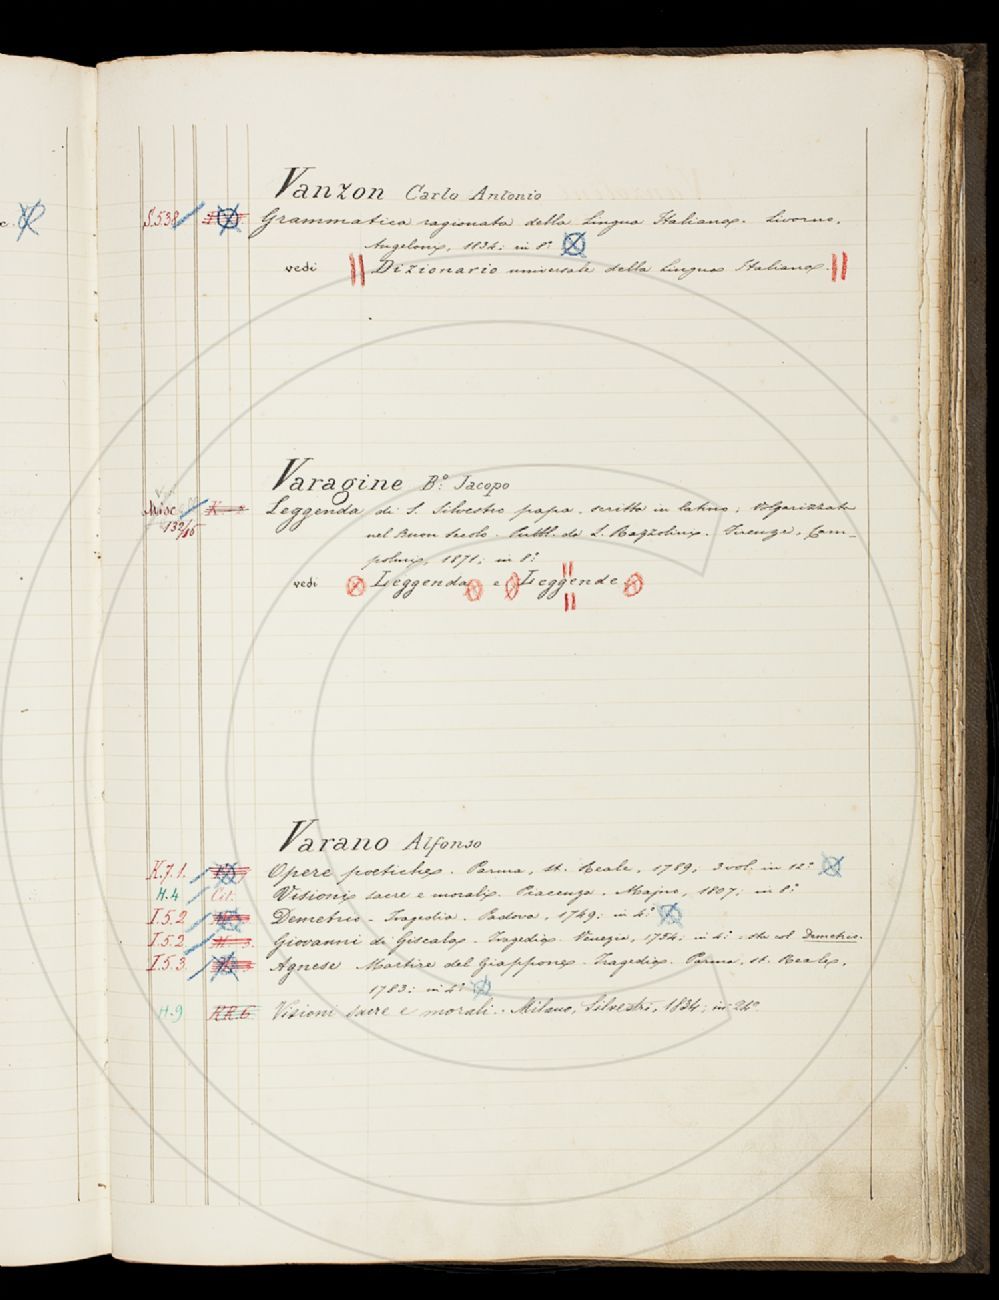 Vanzon Carlo Antonio
S.538 Grammatica ragionata della Lingua Italiana. Livorno,
Angeloni, 1834; in 8°
vedi Dizionario universale della Lingua Italiana.
Varagine B.° Jacopo
Misc. Leggenda di S. Silvestro papa, scritta in latino, volgarizzata
132/15 nel buon secolo. Pubbl. da S. Razzolini. Firenze, Cam-
polmi, 1871; in 8°
vedi Leggenda e Leggende
Varano Alfonso
K.7.1. Opere poetiche. Parma, st. Reale, 1789; 3 vol. in 12°
H.4 Lit. Visioni sacre e morali. Piacenza, Majno, 1807; in 8°
I.5.2 Demetrio - Tragedia. Padova, 1749; in 4°
I.5.2 Giovanni di Giscala. Tragedia. Venezia, 1754; in 4° sta col Demetrio.
I.5.3. Agnese Martire del Giappone. Tragedia. Parma, st. Reale,
1783; in 4°
H.9 RR.6. Visioni sacre e morali. Milano, Silvestri, 1834; in 24°